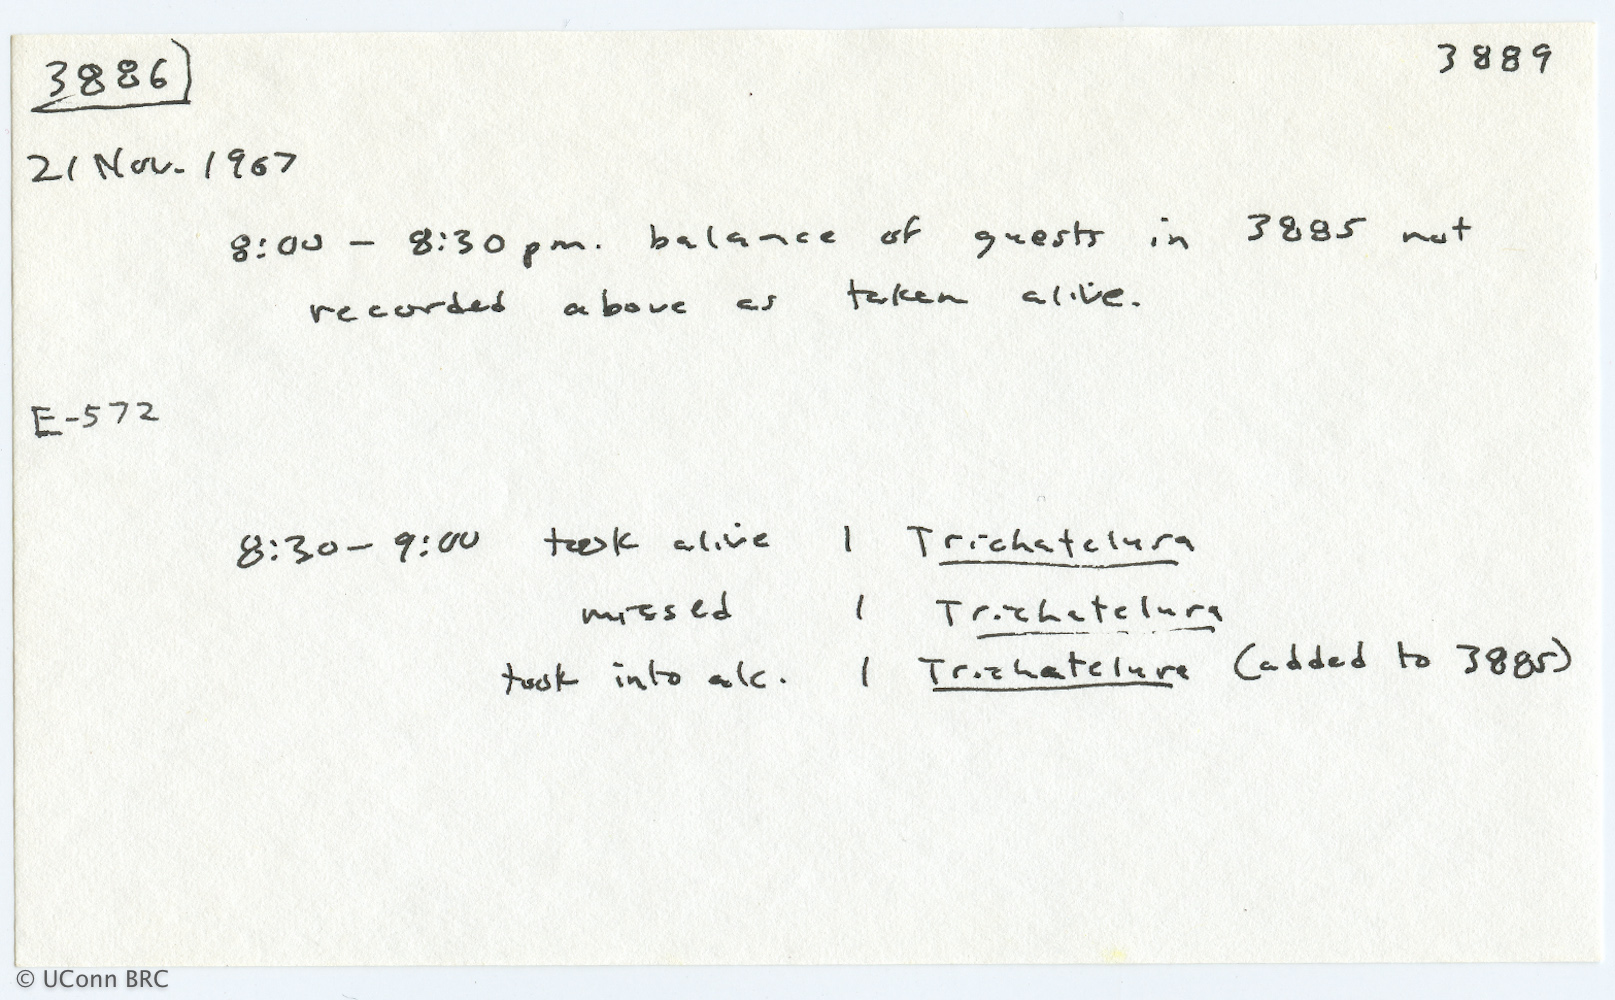 3886 3889
21 Nov. 1967
8:00 - 8:30 pm. balance of guests in 3885 not
recorded above as taken alive.
E-572
8:30 - 9:00 took alive 1 Trichatelura
missed 1 Trichatelura
took into alc. 1 Trichatelura (added to 3885)
© UConn BRC